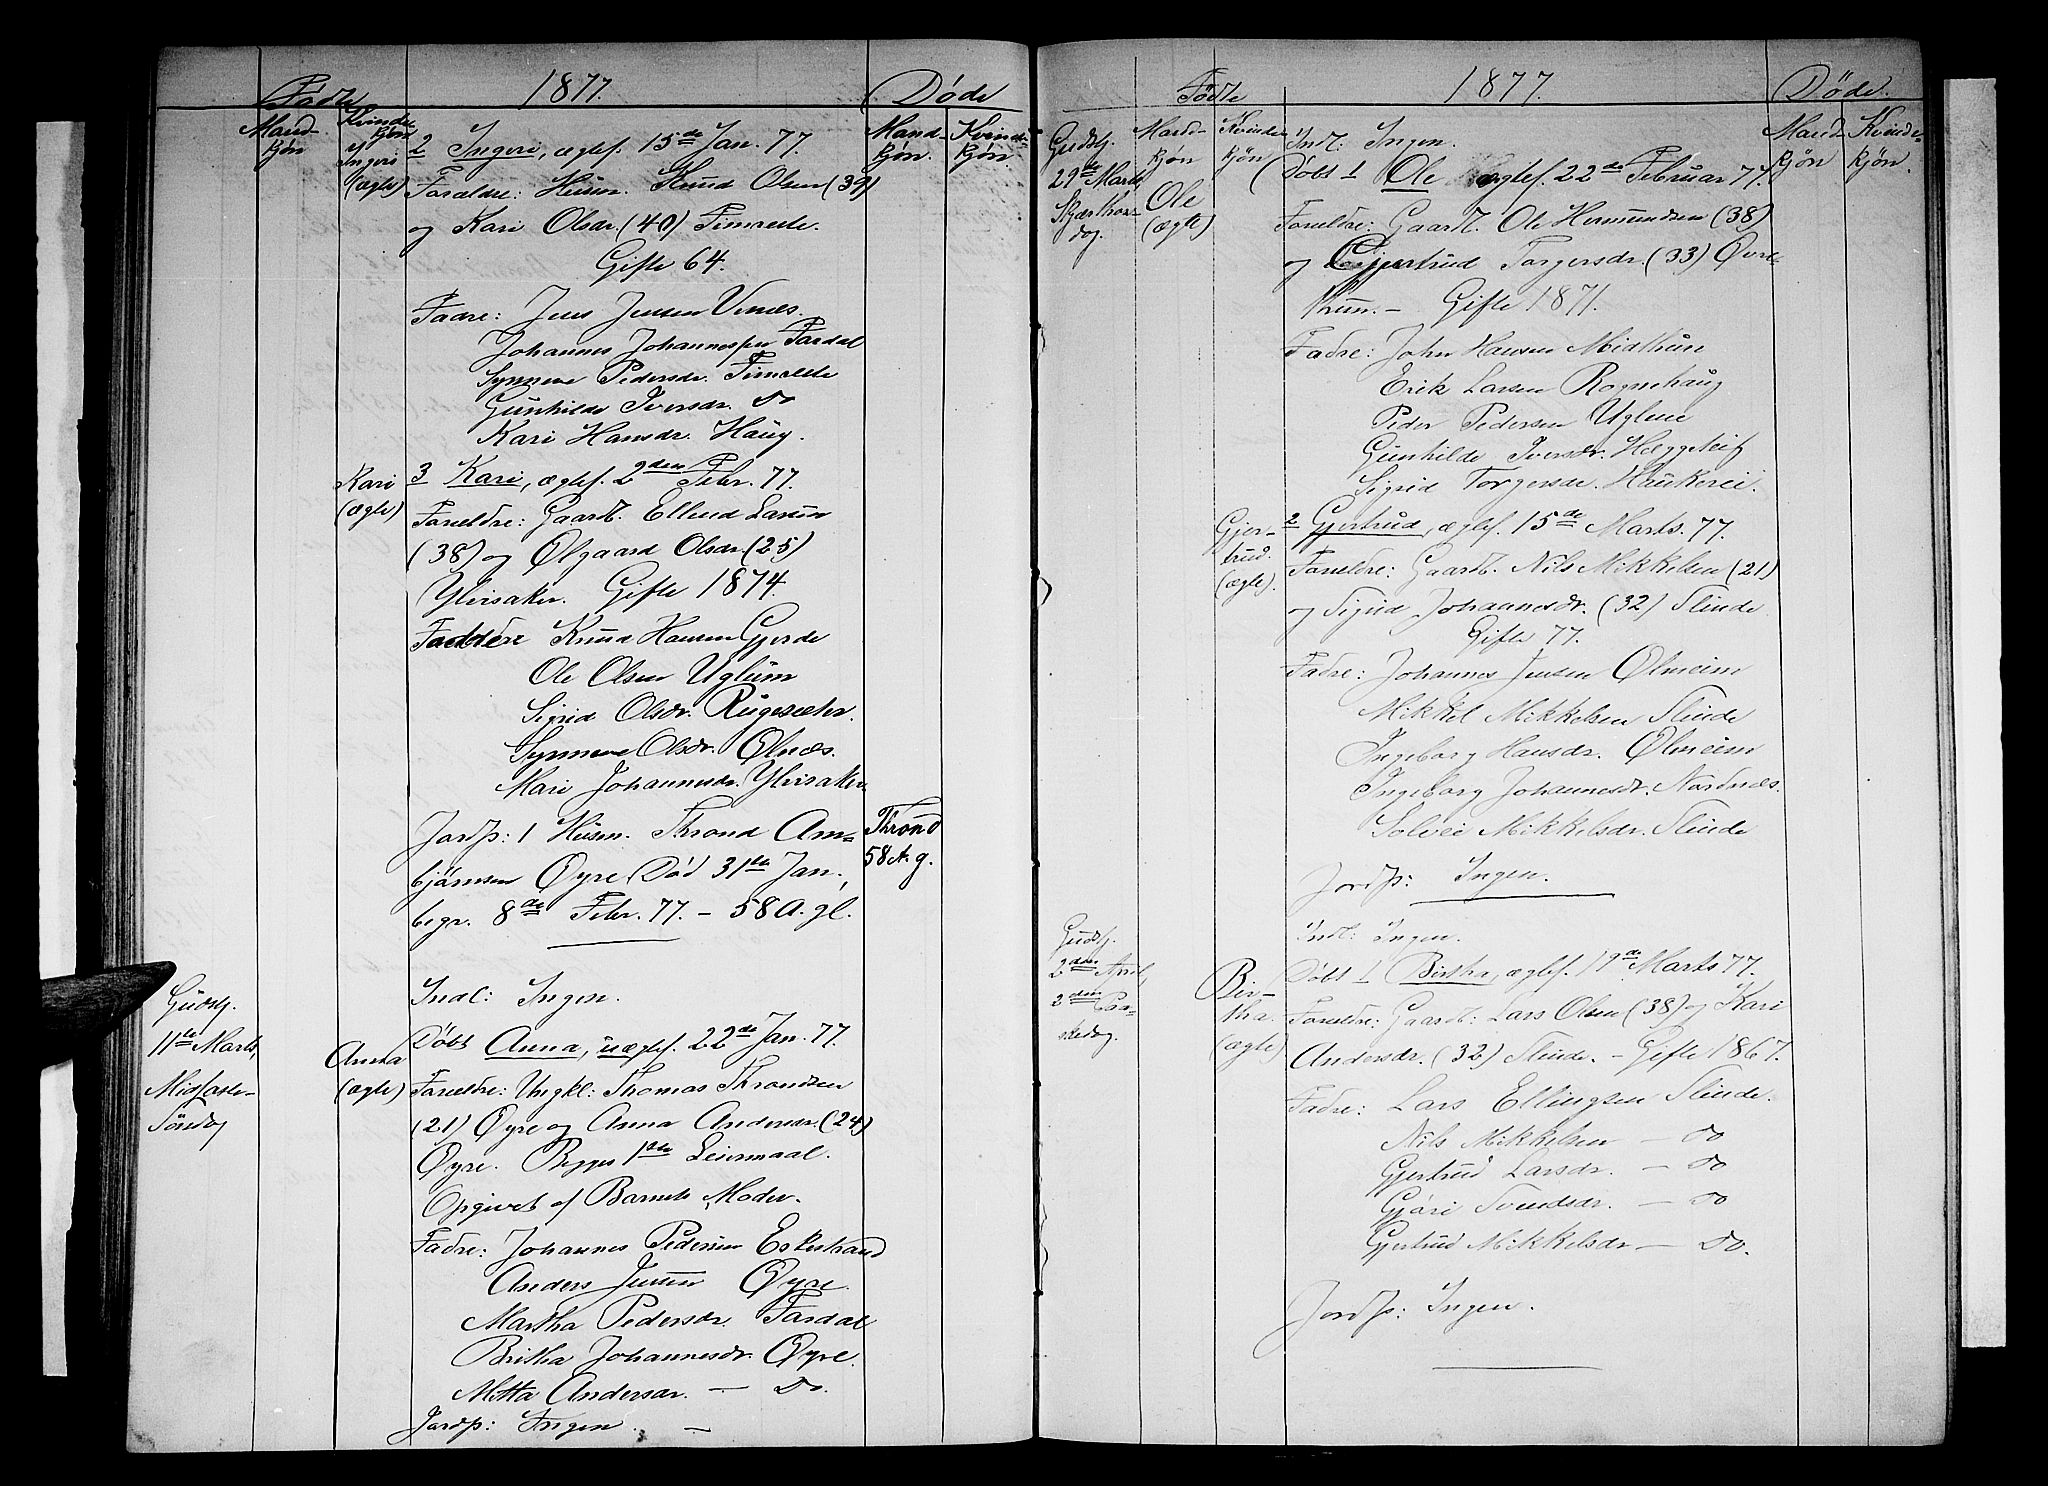 Fødte 1877. Døde
Mand-
kjøn
Kvinde
kjøn
Ingeri
(ægte)
Mand-
kjøn.
Kvinde-
kjøn.
2 Ingeri, ægtef. 15de Jan. 77.
Foreldre: Husm. Knud Olsen (39)
og Kari Olsdr. (40) Timreite.
Gifte 64.
Fadre: Jens Jensen Vines.
Johannes Johannesen Fardal
Synneve Pedersdr. Timreite
Gunhilde Iversdr. do
Kari Hansdr. Haug.
Kari
(ægte)
3 Kari, ægtef. 2den Febr. 77.
Foreldre: Gaardb. Ellend Larsen
(38) og Ølgaard Olsdr (25)
Ylvisaker. Gifte 1874.
Faddere Knud Hansen Gjerde
Ole Olsen Uglum
Sigrid Olsdr. Rugesæter.
Synneve Olsdr. Ølnæs.
Mari Johannesdr. Ylvisaker
Jordf: 1 Husm. Thrond Am-
bjørnsen Øyre, Død 31te Jan.,
begr. 8de Febr. 77. – 58 A. gl.
Thrond
58 A. g.
Gudstj.
11te Marts,
Midfaste-
Søndag
Indl: Ingen.
Anna
(ægte)
Døbt Anna, uægtef. 22de Jan. 77.
Foreldre: Ungkl: Thomas Throndsen
(21) Øyre og Anna Andersdr. (24)
Øyre. Begges 1ste Leiermaal.
Opgivet af Barnets Moder.
Fadre: Johannes Pedersen Eskestrand
Anders Jensen Øyre
Martha Pedersdr. Fardal
Britha Johannesdr. Øyre.
Metta Andersdr. — Do.
Jordf: Ingen. —
Fødte 1877. Døde.
Mand-
kjøn
Kvinde
kjøn
Mand-
kjøn
Kvinde-
kjøn.
Gudstj.
29de Marts,
Skjærthors-
dag.
Ole
(ægte)
Indl. Ingen.
Døbt 1 Ole ægtef. 22de Februar 77.
Foreldre: Gaardb. Ole Hermundsen (38)
og Gjertrud Torgersdr. (33) Øvre-
kum. – Gifte 1871.
Fadre: John Hansen Midthun
Erik Larsen Rognehaug
Peder Pedersen Uglum
Gunhilde Iversdr.
Sigrid Torgersdr. Haukerei.
Gjer-
trud.
(ægte).
2 Gjertrud, ægtef. 15de Marts. 77.
Foreldre: Gaardb. Nils Mikkelsen (21)
og Sigrid Johannesdr. (32) Slinde
Gifte 77.
Fadre: Johannes Jensen Ølmeim
Mikkel Mikkelsen Slinde
Ingeborg Hansdr. Ølmeim
Ingeborg Johannesdr. Nordnæs.
Solvei Mikkelsdr. Slinde
Jordf: Ingen.
Gudstj.
2den April,
2den Paa-
skedag.
Indl: Ingen.
Bri-
tha.
(ægte)
Døbt 1 Britha, ægtef. 19de Marts 77.
Foreldre: Gaardb: Lars Olsen (38) og Kari
Andersdr. (32) Slinde. – Gifte 1867.
Fadre: Lars Ellingsen Slinde.
Nils Mikkelsen — do
Gjertrud Larsdr. — do
Gjøri Svendsdr. — do
Gjertrud Mikkelsdr — do.
Jordf: Ingen.